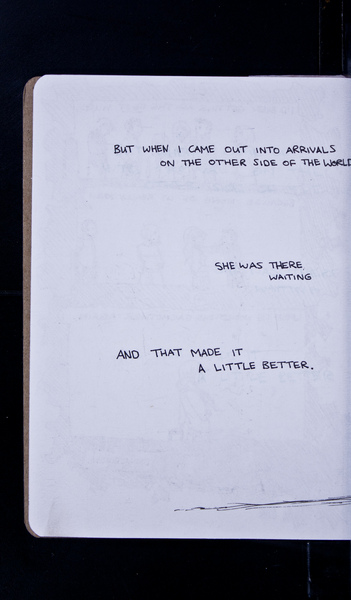 BUT WHEN I CAME OUT INTO ARRIVALS
ON THE OTHER SIDE OF THE WORLD
SHE WAS THERE
WAITING
AND THAT MADE IT
A LITTLE BETTER.